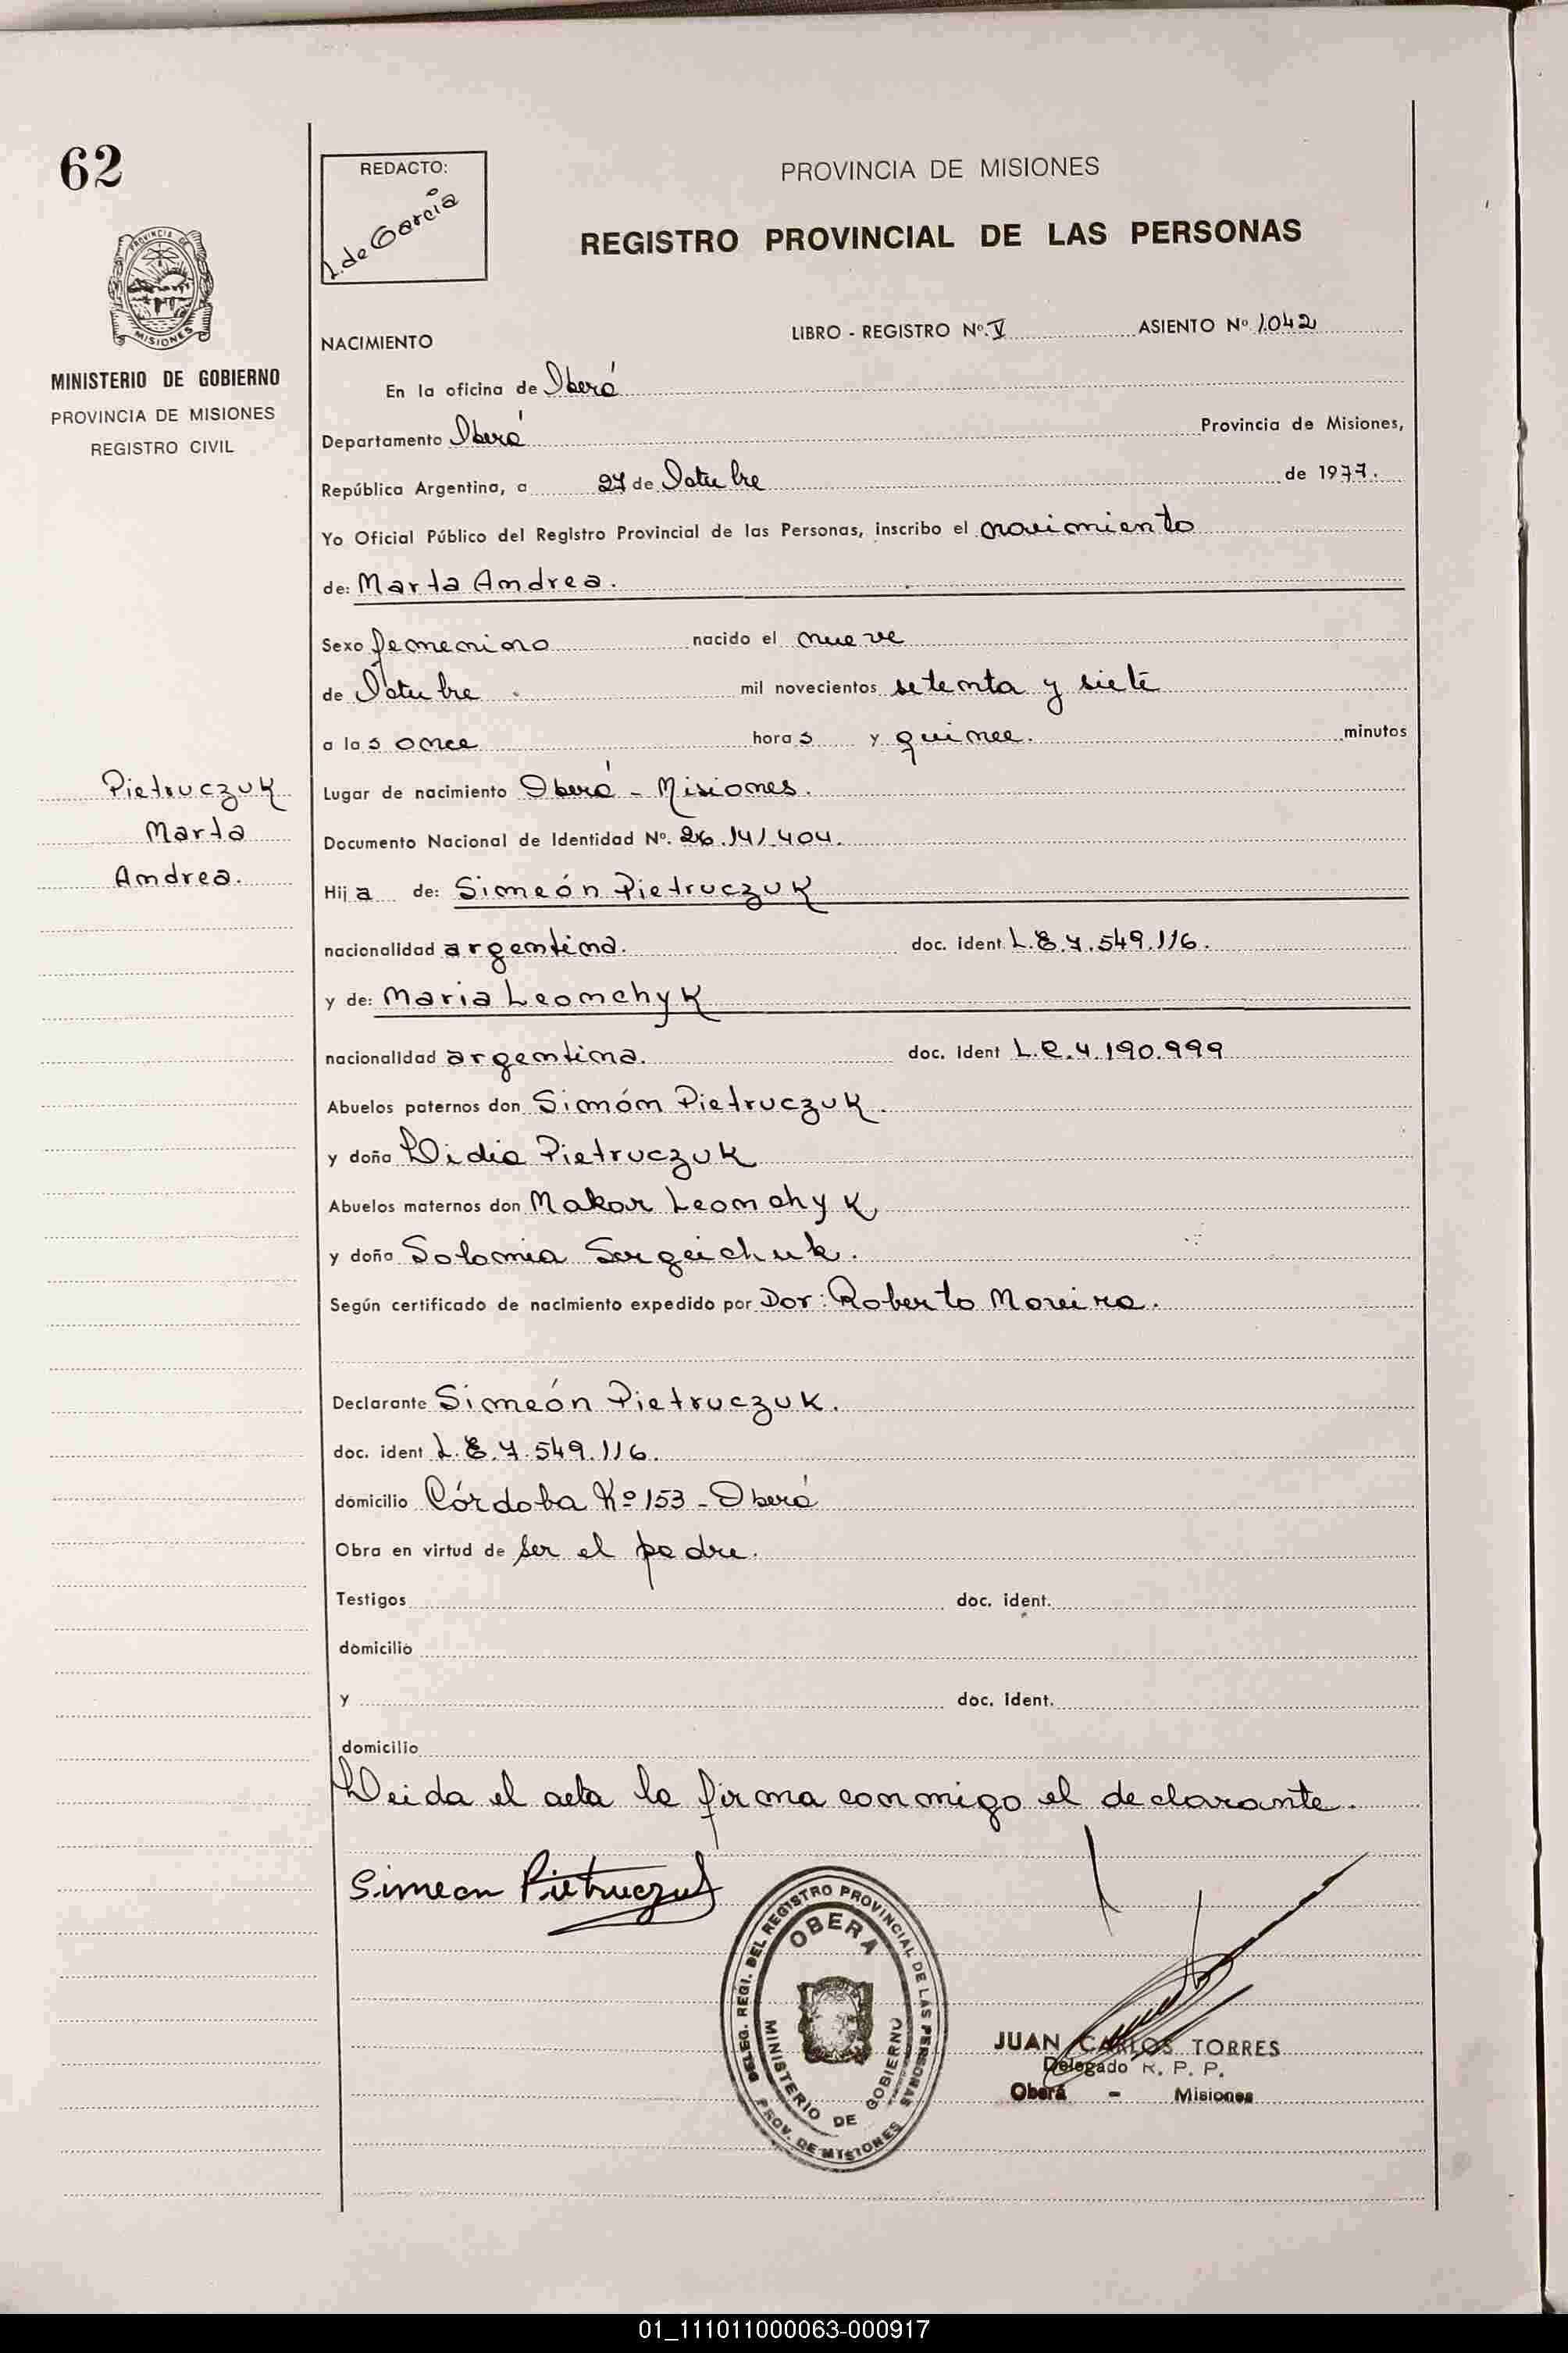 62
PROVINCIA DE
MISIONES
MINISTERIO DE GOBIERNO
PROVINCIA DE MISIONES
REGISTRO CIVIL
Pietruczuk
Marta
Andrea.
REDACTO:
L. de García
PROVINCIA DE MISIONES
REGISTRO PROVINCIAL DE LAS PERSONAS
NACIMIENTO LIBRO - REGISTRO Nº. V ASIENTO Nº 1.042
En la oficina de Oberá
Departamento Oberá Provincia de Misiones,
República Argentina, a 27 de Octubre de 1977.
Yo Oficial Público del Registro Provincial de las Personas, inscribo el nacimiento
de: Marta Andrea.
Sexo femenino nacido el nueve
de Octubre mil novecientos setenta y siete
a las once horas y quince. minutos
Lugar de nacimiento Oberá - Misiones.
Documento Nacional de Identidad Nº. 26.141.404.
Hija de: Simeón Pietruczuk
nacionalidad argentina. doc. ident L.E.7.549.116.
y de: Maria Leonchyk
nacionalidad argentina. doc. Ident L.C.4.190.999
Abuelos paternos don Simón Pietruczuk.
y doña Lidia Pietruczuk
Abuelos maternos don Makar Leonchyk
y doña Solomia Sergeichuk.
Según certificado de nacimiento expedido por Dor: Roberto Moreira.
Declarante Simeón Pietruczuk.
doc. ident L.E.7.549.116.
domicilio Córdoba Nº 153 - Oberá
Obra en virtud de ser el padre.
Testigos doc. ident.
domicilio
y doc. Ident.
domicilio
Leida el acta la firma conmigo el declarante.
Simeon Pietruczuk
DELEG. REGI. DEL REGISTRO PROVINCIAL DE LAS PERSONAS
OBERA
MINISTERIO DE GOBIERNO
PROV. DE MISIONES
JUAN CARLOS TORRES
Delegado R. P. P.
Oberá - Misiones
01_111011000063-000917